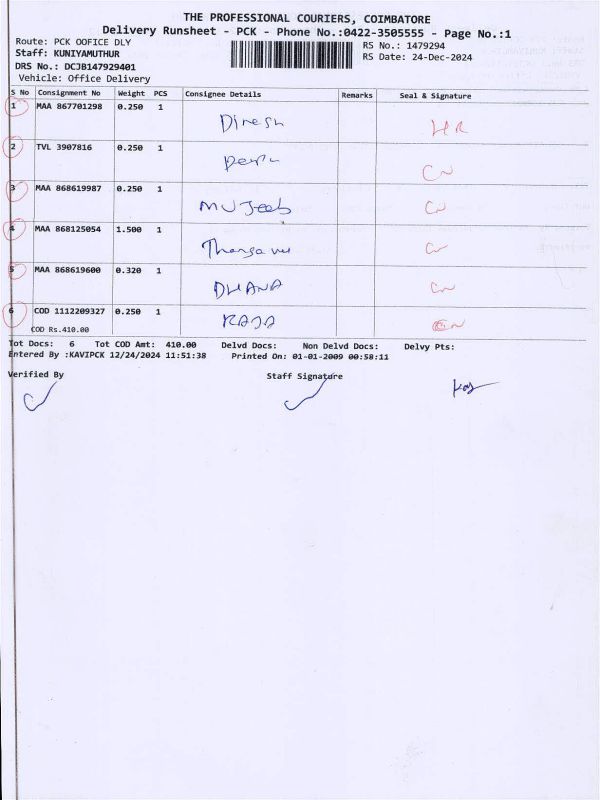 THE PROFESSIONAL COURIERS, COIMBATORE
Delivery Runsheet - PCK - Phone No.:0422-3505555 - Page No.:1
Route: PCK OOFICE DLY
RS No.: 1479294
Staff: KUNIYAMUTHUR
RS Date: 24-Dec-2024
DRS No.: DCJB147929401
Vehicle: Office Delivery
S No Consignment No Weight PCS Consignee Details Remarks Seal & Signature
1 MAA 867701298 0.250 1
Dinesh
HR
2 TVL 3907816 0.250 1
3 MAA 868619987 0.250 1
MUJeeb
4 MAA 868125054 1.500 1
Thangavel
5 MAA 868619600 0.320 1
DHANA
6 COD 1112209327 0.250 1
RAJA
COD Rs.410.00
Tot Docs: 6 Tot COD Amt: 410.00 Delvd Docs: Non Delvd Docs: Delvy Pts:
Entered By :KAVIPCK 12/24/2024 11:51:38 Printed On: 01-01-2009 00:58:11
Verified By Staff Signature